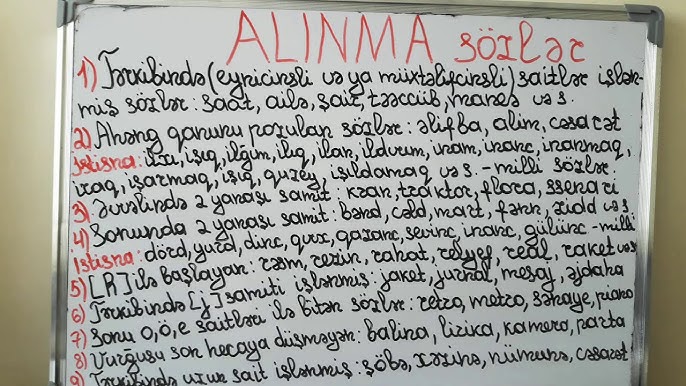 ALINMA sözlər
1) Tərkibində (eynicinsli və ya müxtəlifcinsli) saitlər işlən-
miş sözlər: saat, ailə, şair, təəccüb, mane və s.
2) Ahəng qanunu pozulan sözlər: əlifba, alim, cəsarət
İstisna: ilxı, işıq, ilğım, ilıq, ilan, ildırım, inam, inanc, inanmaq,
iraq, işarmaq, işıq, quzey, işıldamaq və s. - milli sözlər.
3) Əvvəlində 2 yanaşı samit: kran, traktor, flora, ssenari
4) Sonunda 2 yanaşı samit: bənd, cəld, mart, fənn, zidd və s
İstisna: dörd, yurd, dinc, qırx, qazanc, sevinc, inanc, gülünc - milli
5) [R] ilə başlayan: rəsm, rezin, rahat, relyef, real, raket və s
6) Tərkibində [j] samiti işlənmiş: jaket, jurnal, mesaj, əjdaha
7) Sonu o, ö, e saitləri ilə bitən sözlər: retro, metro, səhaye, piano
8) Vurğusu son hecaya düşməyən: balina, lirika, kamera, parta
9) Tərkibində uzun sait işlənmiş: şöbə, xəzinə, nümunə, cəsarət